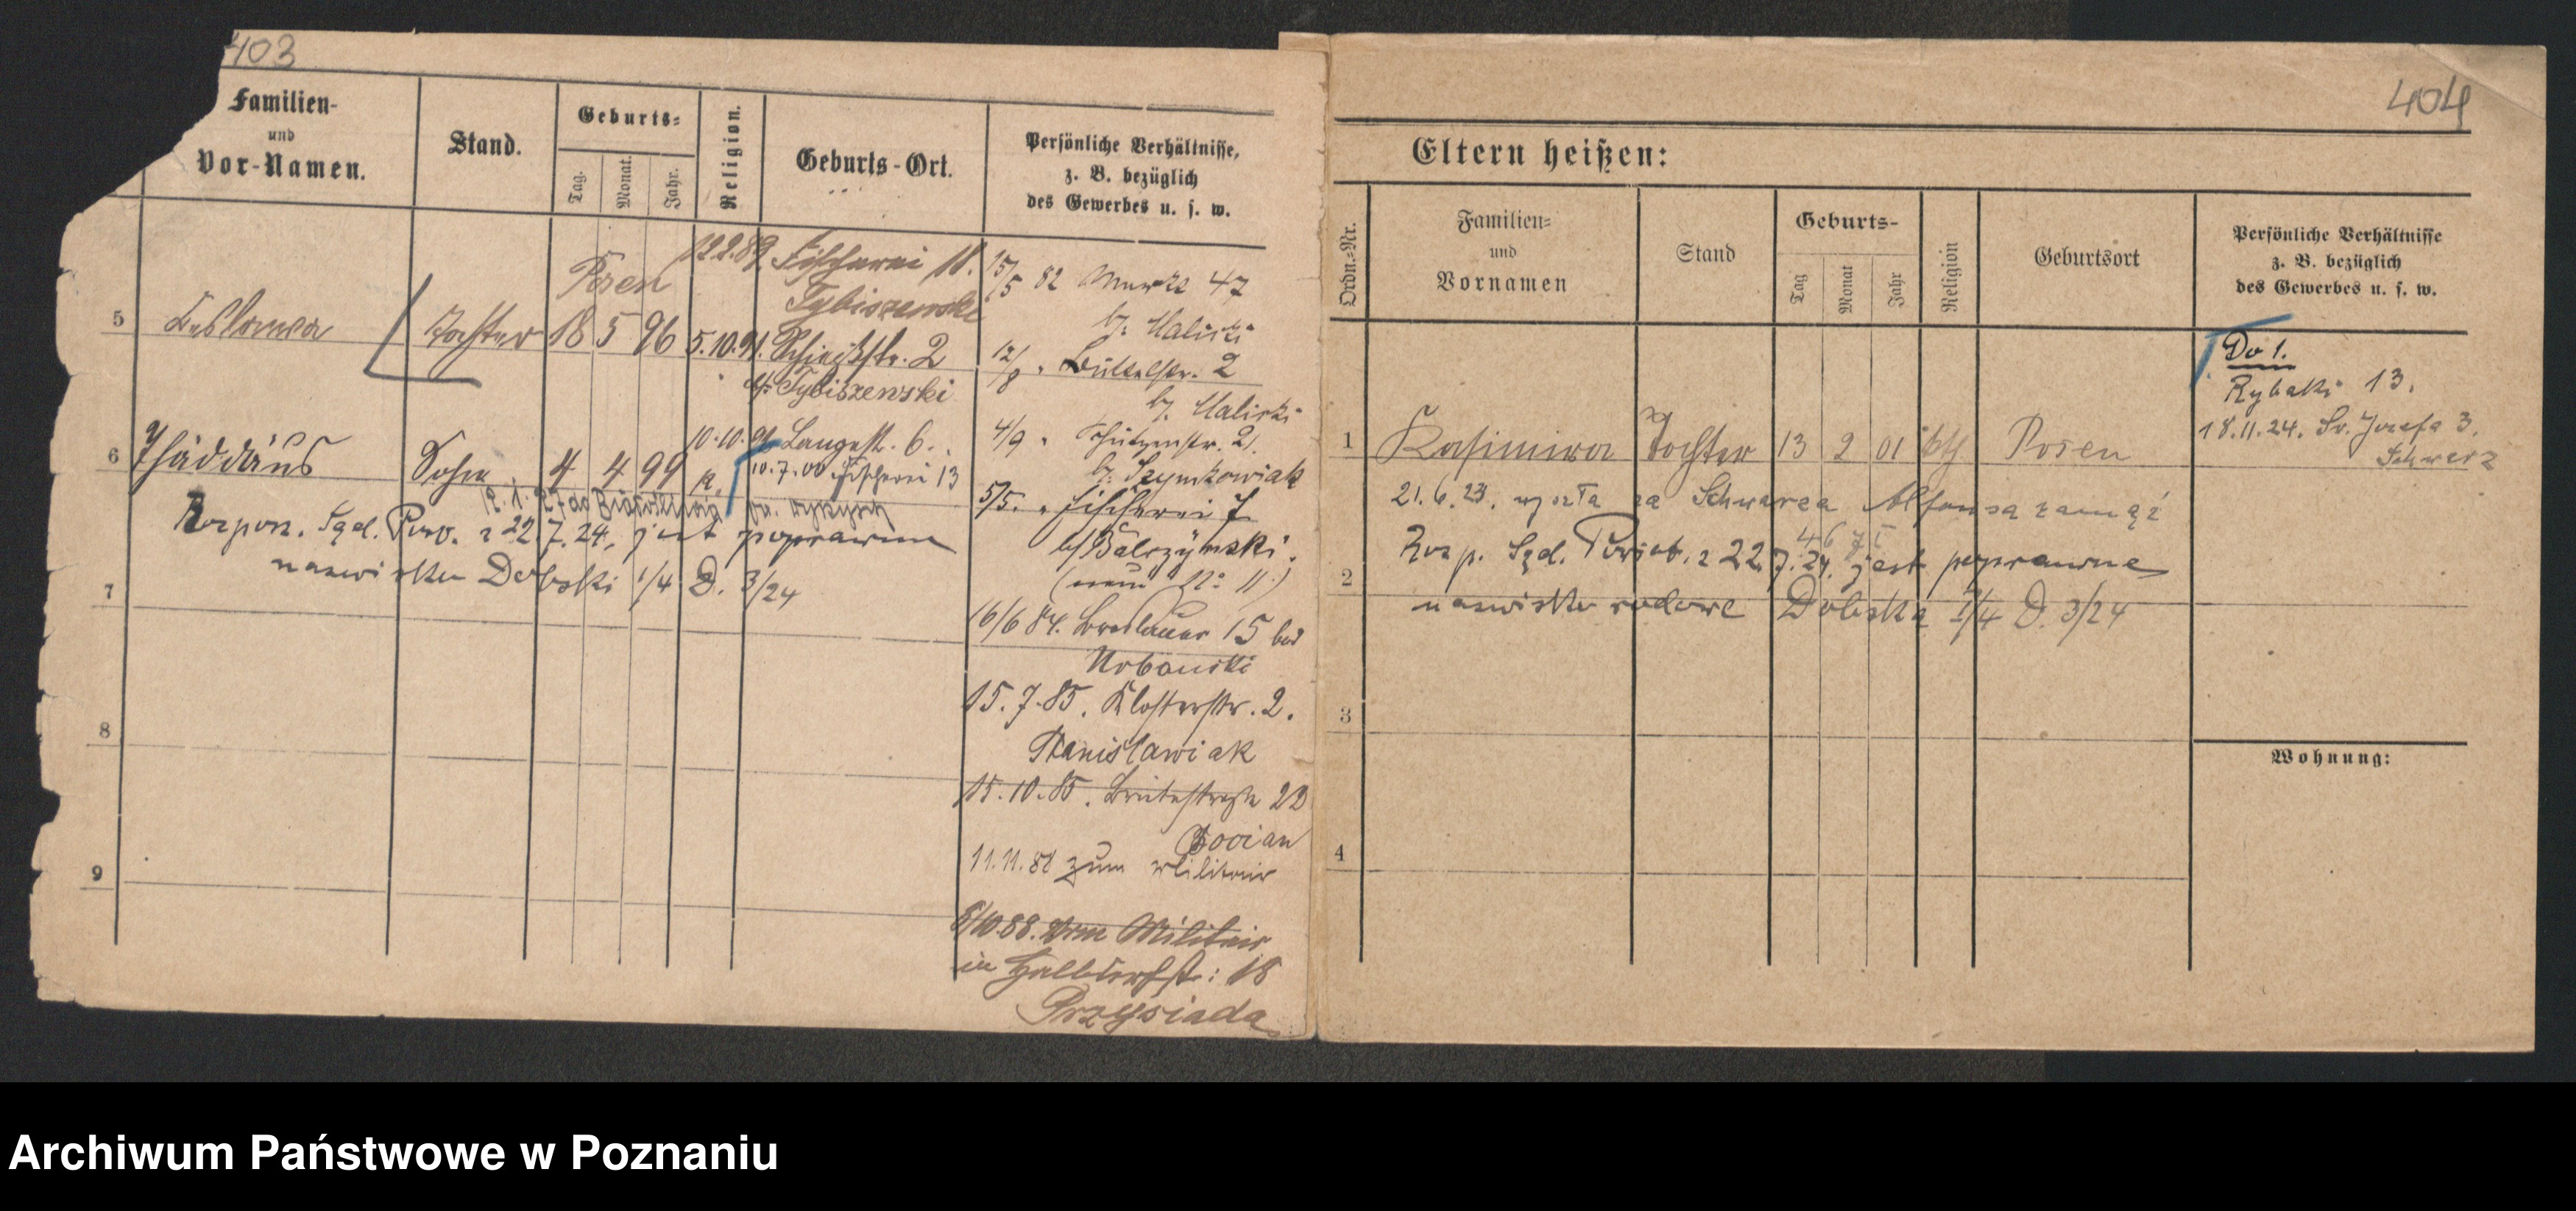 403
Familien-
und
Vor-Namen.
Stand.
Geburts-
Tag.
Monat.
Jahr.
Religion.
Geburts-Ort.
Persönliche Verhältnisse,
z. B. bezüglich
des Gewerbes u. s. w.
5
Tochter 18 5 96
Posen
12.2.89. Fischerei 11.
Tybiszewski
5.10.91. 2
b/ Tybiszewski
6 Thäddäus Sohn 4 4 99 k.
10.10.91 Langestr. 6.
10.7.00 Fischerei 13
Rozporz. Sąd. Pow. z 22.7.24. jest poprawne
nazwisko Dobski 1/4 D. 3/24
7
8
9
15/5 82 47
b/. Maliski
12/8 " Büttelstr. 2
b/. Maliski
4/9 " Schützenstr. 21.
b/. Szymkowiak
5/5. " Fischerei 7
b/ Balczynski.
(neue No 11.)
16/6 84. Breslauer 15 bei
Urbanski
15.7.85. Klosterstr. 2.
Stanislawiak
15.10.85. Breitestraße 22
11.11.8 zum Militair
8/10.88. Vom Militair
in Halbdorfstr: 18
Przysiada
404
Eltern heißen:
Ordn.-Nr.
Familien-
und
Vornamen
Stand
Geburts-
Tag
Monat
Jahr
Religion
Geburtsort
Persönliche Verhältnisse
z. B. bezüglich
des Gewerbes u. s. w.
Do 1.
Rybaki 13.
18.11.24. Św. Józefa 3.
Schwarz
1 Kasimira Tochter 13 2 01 kth Posen
21.6.23. wyszła za Schwarca Alfonsa zamąż
2
Rozp. Sąd. Powiat. z 22.7.24. jest poprawne
nazwisko rodowe Dobska 1/4 D. 3/24
3
4
Wohnung:
Archiwum Państwowe w Poznaniu